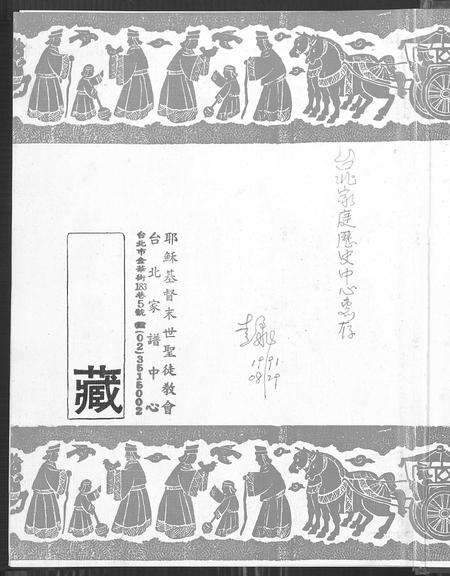 台北家庭歷史中心惠存
1991
08/29
耶穌基督末世聖徒教會
台北家譜中心
台北市金華街183巷5號 ☎(02)3515002
藏